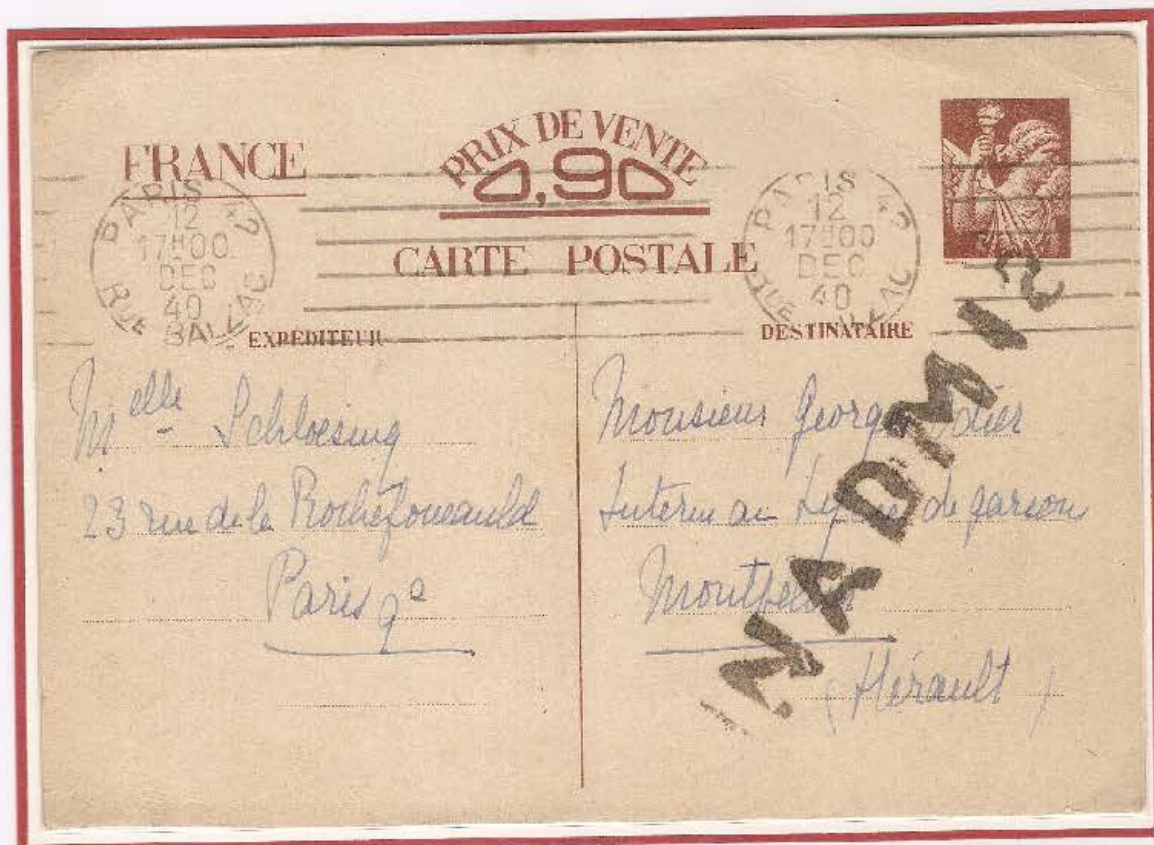 FRANCE
PRIX DE VENTE
0,90
CARTE POSTALE
PARIS 42
12
17H00
DEC
40
RUE BALZAC
PARIS 42
12
17H00
DEC
40
RUE
EXPEDITEUR
Melle Schloesing
23 rue de la Rochefoucauld
Paris 9e
DESTINATAIRE
Monsieur
Interne au Lycée de garson
(Hérault)
INADMIS